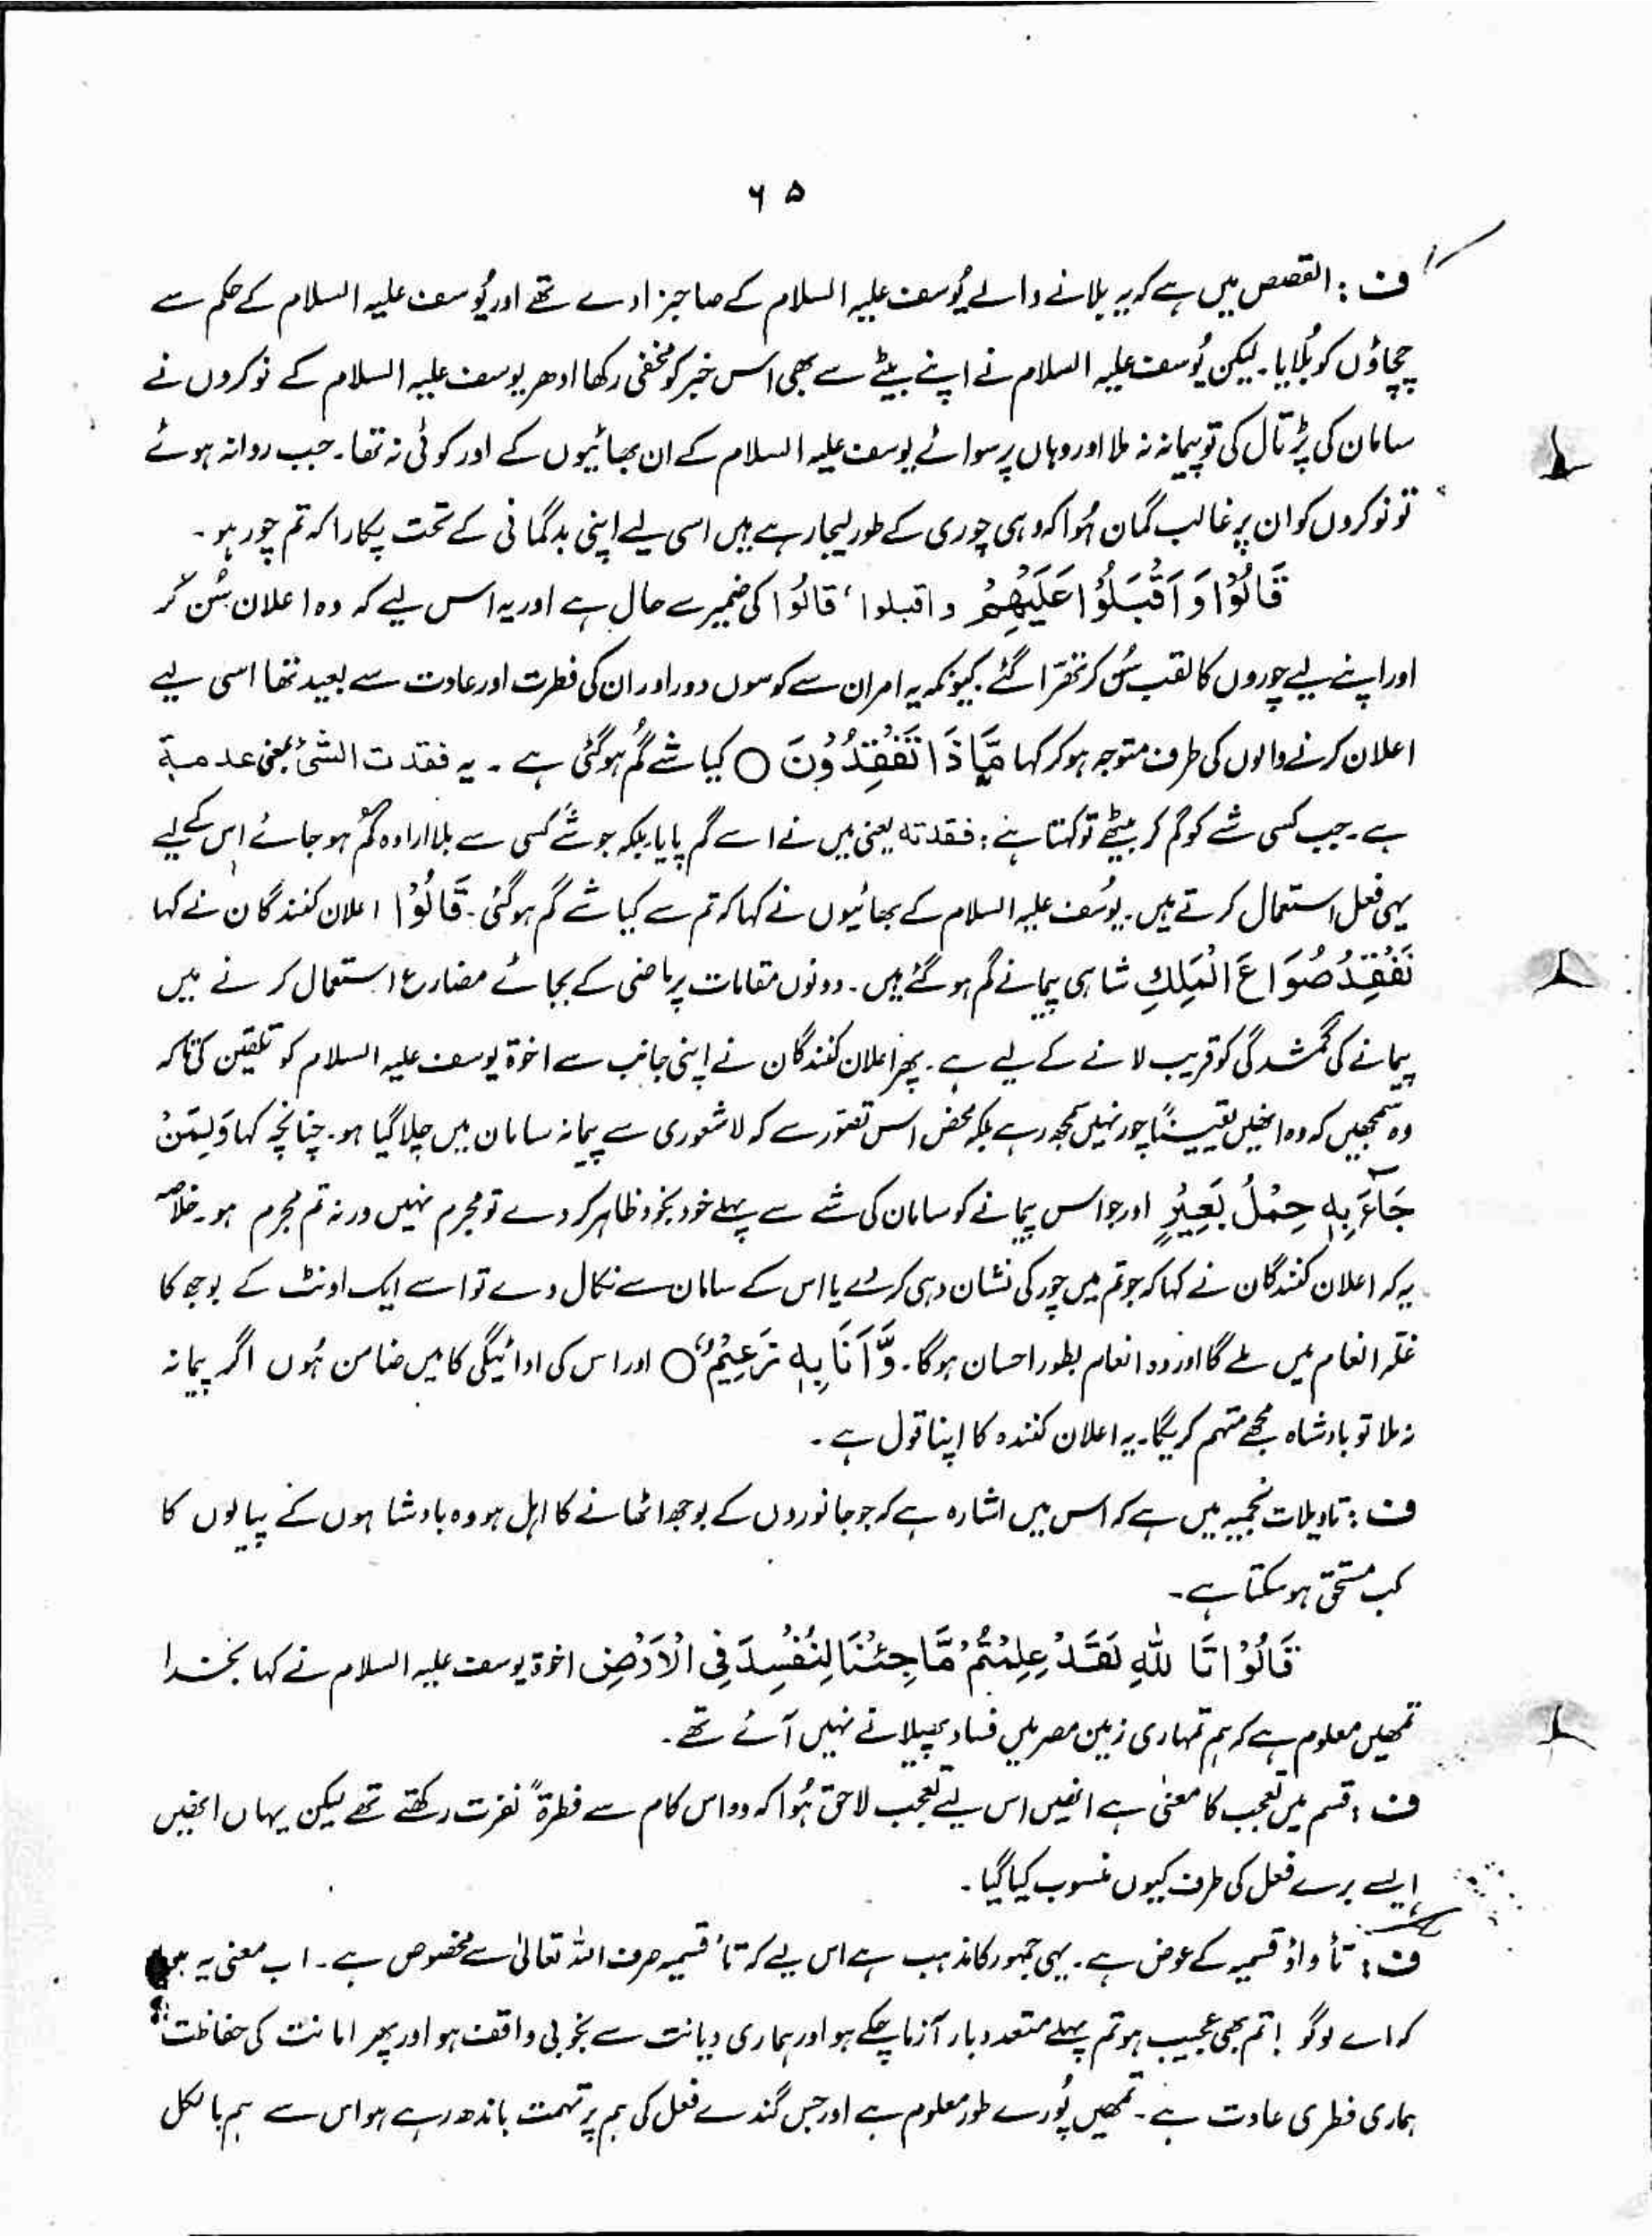 ۶۵
ف : القصص میں ہے کہ یہ بلانے والے یُوسف علیہ السلام کے صاحبزادے تھے اور یُوسف علیہ السلام کے حکم سے
چچاؤں کو بُلایا۔ لیکن یُوسف علیہ السلام نے اپنے بیٹے سے بھی اس خبر کو مخفی رکھا ادھر یوسف علیہ السلام کے نوکروں نے
سامان کی پڑتال کی تو پیمانہ نہ ملا اور وہاں پر سوائے یوسف علیہ السلام کے ان بھائیوں کے اور کوئی نہ تھا۔ جب روانہ ہوئے
تو نوکروں کو ان پر غالب گمان ہُوا کہ وہی چوری کے طور لیجا رہے ہیں اسی لیے اپنی بدگمانی کے تحت پکارا کہ تم چور ہو۔
قَالُوْا وَاَقْبَلُوْا عَلَيْهِمْ واقبلوا ، قالُوْا کی ضمیر سے حال ہے اور یہ اس لیے کہ وہ اعلان سُن کر
اور اپنے لیے چوروں کا لقب سُن کر تھرّا گئے۔ کیونکہ یہ امر ان سے کوسوں دور اور ان کی فطرت اور عادت سے بعید تھا اسی لیے
اعلان کرنے والوں کی طرف متوجہ ہو کر کہا مَّاذَا تَفْقِدُوْنَ ○ کیا شے گُم ہوگئی ہے ۔ یہ فقدت الشئ بمعنی عدمتہ
ہے۔ جب کسی شے کو گم کر بیٹھے تو کہتا ہے : فقدتہ یعنی میں نے اسے گم پایا بلکہ جو شے کسی سے بلا ارادہ گم ہو جائے اس کے لیے
یہی فعل استعمال کرتے ہیں۔ یوسُف علیہ السلام کے بھائیوں نے کہا کہ تم سے کیا شے گم ہوگئی۔ قَالُوْا اعلان کنندگان نے کہا
نَفْقِدُ صُوَاعَ الْمَلِكِ شاہی پیمانے گم ہو گئے ہیں۔ دونوں مقامات پر ماضی کے بجائے مضارع استعمال کرنے میں
پیمانے کی گمشدگی کو قریب لانے کے لیے ہے۔ پھر اعلان کنندگان نے اپنی جانب سے اخوۃ یوسف علیہ السلام کو تلقین کی تاکہ
وہ سمجھیں کہ وہ انھیں یقیناً چور نہیں سمجھ رہے بلکہ محض اس تصوّر سے کہ لاشعوری سے پیمانہ سامان میں چلا گیا ہو۔ چنانچہ کہا وَلِمَنْ
جَآءَ بِهٖ حِمْلُ بَعِيْرٍ اور جو اس پیمانے کو سامان کی شے سے پہلے خود بخود ظاہر کر دے تو مجرم نہیں ورنہ تم مجرم ہو۔ خلاصہ
یہ کہ اعلان کنندگان نے کہا کہ جو تم میں چور کی نشان دہی کرے یا اس کے سامان سے نکال دے تو اسے ایک اونٹ کے بوجھ کا
غلّہ انعام میں ملے گا اور وہ انعام بطور احسان ہوگا۔ وَّاَنَا بِهٖ زَعِيْمٌ ○ اور اس کی ادائیگی کا میں ضامن ہُوں اگر پیمانہ
نہ ملا تو بادشاہ مجھے متہم کریگا۔ یہ اعلان کنندہ کا اپنا قول ہے ۔
ف : تاویلات نجمیہ میں ہے کہ اس میں اشارہ ہے کہ جو جانوروں کے بوجھ اٹھانے کا اہل ہو وہ بادشاہوں کے پیالوں کا
کب مستحق ہو سکتا ہے۔
قَالُوْا تَاللّٰهِ لَقَدْ عَلِمْتُمْ مَّا جِئْنَا لِنُفْسِدَ فِى الْاَرْضِ اخوۃ یوسف علیہ السلام نے کہا بخدا
تمھیں معلوم ہے کہ ہم تمہاری زمین مصر میں فساد پھیلانے نہیں آئے تھے۔
ف : قسم میں تعجب کا معنٰی ہے انھیں اس لیے تعجب لاحق ہُوا کہ وہ اس کام سے فطرۃً نفرت رکھتے تھے لیکن یہاں انھیں
ایسے برے فعل کی طرف کیوں منسوب کیا گیا۔
ف : تأ واؤ قسمیہ کے عوض ہے۔ یہی جمہور کا مذہب ہے اس لیے کہ تاء قسمیہ صرف اللہ تعالیٰ سے مخصوص ہے۔ اب معنی یہ
کہ اے لوگو ! تم بھی عجیب ہو تم پہلے متعدد بار آزما چکے ہو اور ہماری دیانت سے بخوبی واقف ہو اور پھر امانت کی حفاظت
ہماری فطری عادت ہے۔ تمھیں پُورے طور معلوم ہے اور جس گندے فعل کی ہم پر تہمت باندھ رہے ہو اس سے ہم بالکل